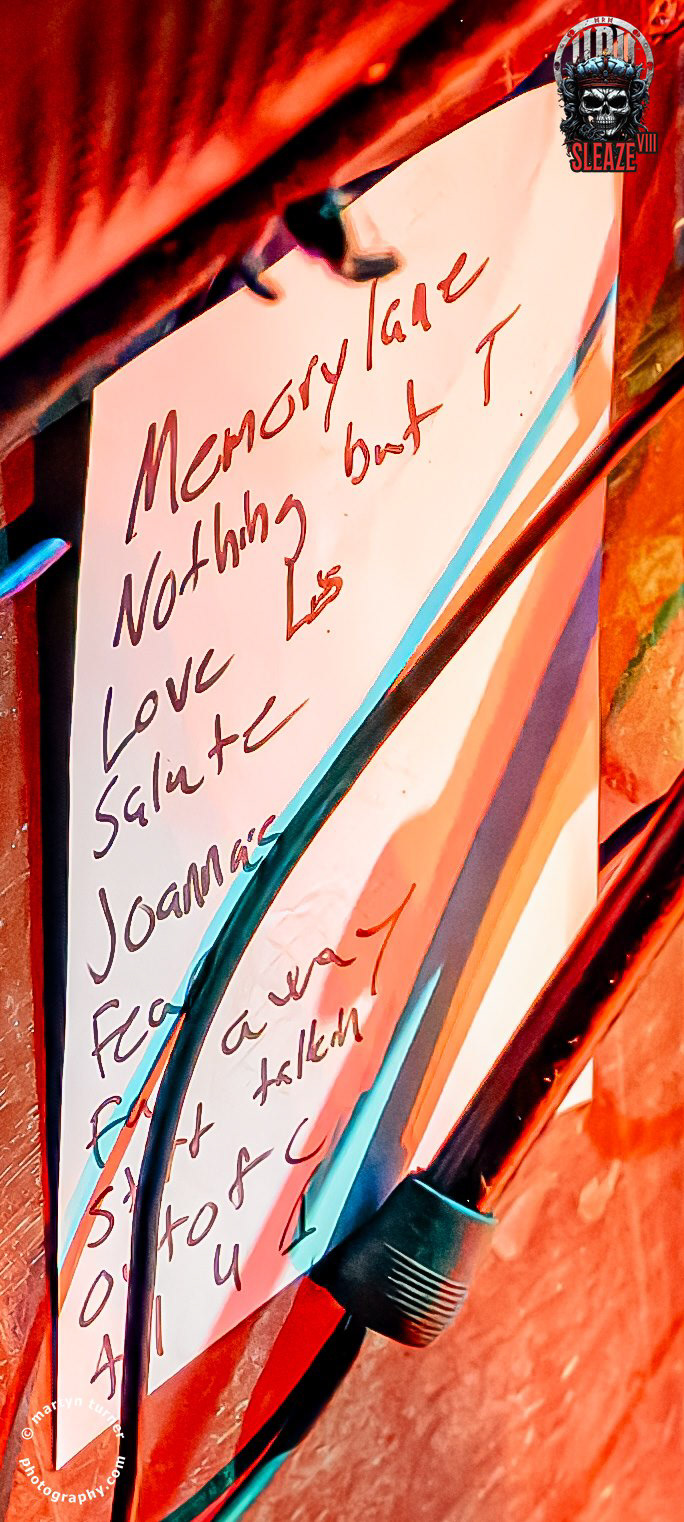 MRM
SLEAZE VIII
Memory lane
Nothing but T
Love
Salute
Joanna's
Fea
away
Start talkin
Out of C
All U
© martyn turner
photography.com